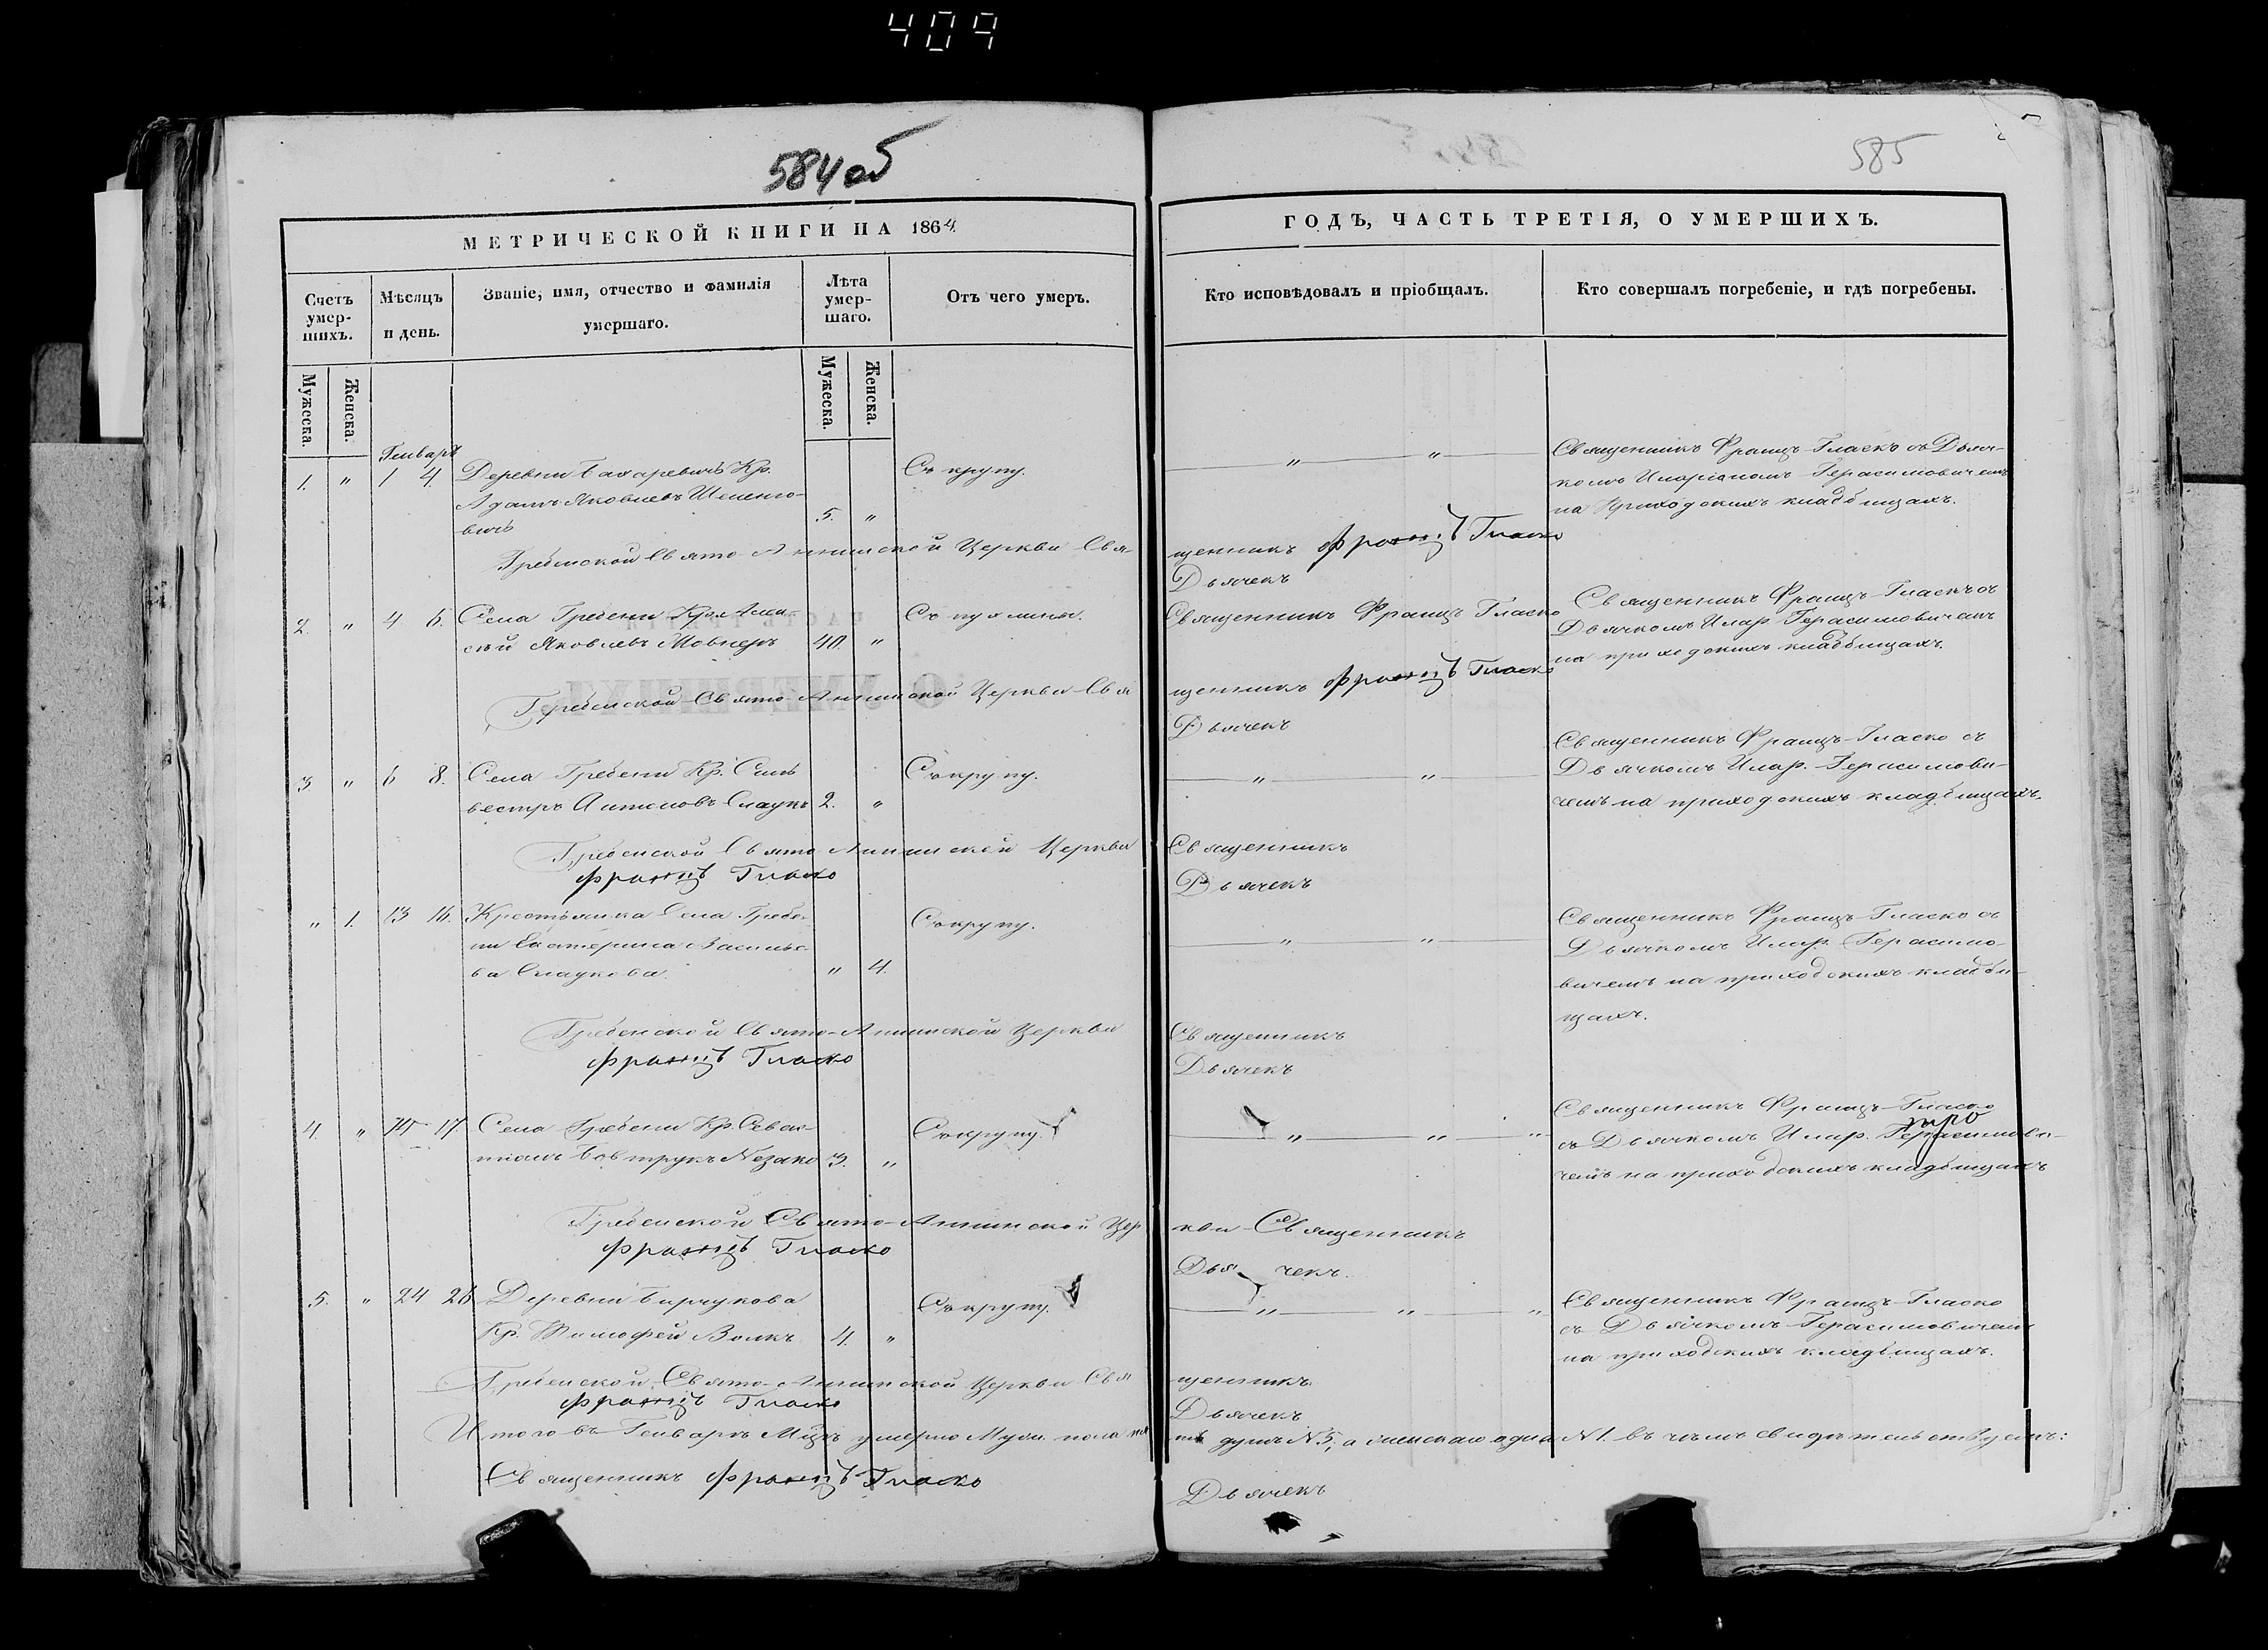 409
584 об
585
МЕТРИЧЕСКОЙ КНИГИ НА 1864.
ГОДЪ, ЧАСТЬ ТРЕТІЯ, О УМЕРШИХЪ.
Счетъ умер-шихъ.
Мѣсяцъ и день.
Званіе, имя, отчество и фамилія умершаго.
Лѣта умер-шаго.
Отъ чего умеръ.
Кто исповѣдовалъ и пріобщалъ.
Кто совершалъ погребеніе, и гдѣ погребены.
Мужеска.
Женска.
Мужеска.
Женска.
Генварь
1. " 1 4. Деревни Кр. Съ крупу. " " Священникъ Францъ Гласко съ Дьяч-
Адамъ Яковлевъ комъ Иларіономъ Герасимовичемъ
вичъ 5. " на Приходскихъ кладбищахъ.
Гребенской Свято-Аннинской Церкви Свя-
щенникъ Францъ Гласко
Дьячекъ
2. " 4 6. Села Гребени Кр. Алек- Священникъ Францъ Гласко Священникъ Францъ Гласко съ
сѣй Яковлевъ 40. " Дьячкомъ Илар. Герасимовичемъ
на приходскихъ кладбищахъ.
Гребенской Свято-Аннинской Церкви Свя
щенникъ Францъ Гласко
Дьячекъ
3 " 6 8. Села Гребени Кр. Силь Съ крупу. " " Священникъ Францъ Гласко съ
вестръ Антоновъ 2. " Дьячкомъ Илар. Герасимови-
чемъ на приходскихъ кладбищахъ.
Гребенской Свято-Аннинской Церкви Священникъ
Францъ Гласко Дьячекъ
" 1. 13 16. Крестьянка Села Гребе- Съ крупу. " " Священникъ Францъ Гласко съ
ни Екатерина Василье- Дьячкомъ Илар. Герасимо-
ва " 4. вичемъ на приходскихъ кладби-
щахъ.
Гребенской Свято-Аннинской Церкви Священникъ
Францъ Гласко Дьячекъ
4. " 17. Села Гребени Кр. Севас- Съ крупу. " " " Священникъ Францъ Гласко
3. " съ Дьячкомъ Илар. Герасимови-
чемъ на приходскихъ кладбищахъ
Гребенской Свято-Аннинской Цер кви Священникъ
Францъ Гласко Дьячекъ.
5. " 24 26 Деревни Съ крупу. " " " Священникъ Францъ Гласко
Кр. Тимофей Волкъ 4. " съ Дьячкомъ Герасимовичемъ
на приходскихъ кладбищахъ.
Гребенской Свято-Аннинской Церкви Свя щенникъ
Францъ Гласко Дьячекъ
Итого въ Генварѣ Мцѣ умерло Муж. пола душъ N 5, а женскаго одна N 1. въ чемъ свидѣтельствуемъ:
Священникъ Францъ Гласко
Дьячекъ